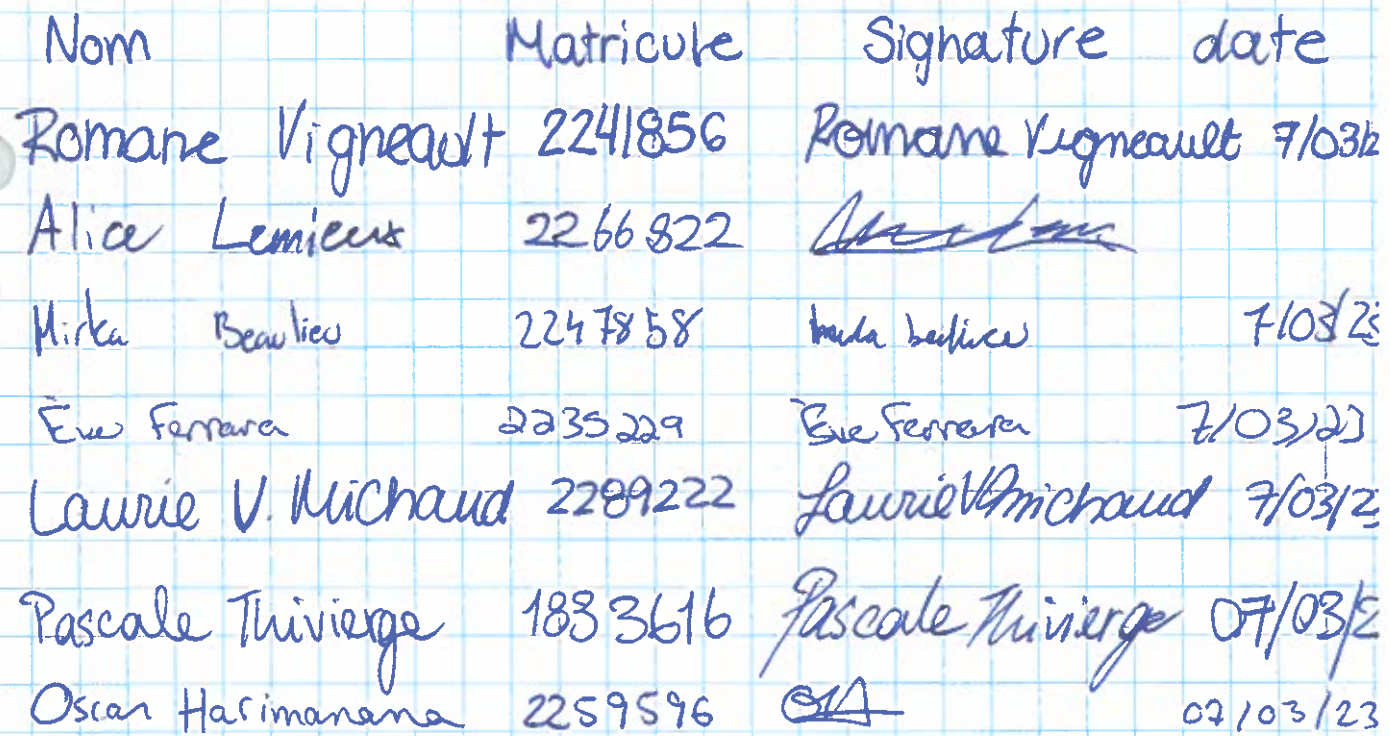 Nom Matricule Signature date
Romane Vigneault 2241856 Romane Vigneault 7/03/2
Alice Lemieux 2266822
Mirka Beaulieu 2247858 7/03/23
Ève Ferrara 2235229 Ève Ferrara 7/03/23
Laurie V. Michaud 2289222 Laurie V Michaud 7/03/2
Pascale Thivierge 1833616 Pascale Thivierge 07/03/2
Oscar Harimanana 2259596 07/03/23